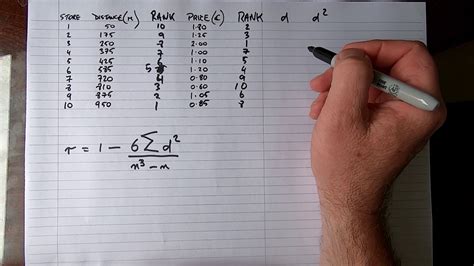 STORE DISTANCE(M) RANK PRICE(£) RANK d d²
1 50 10 1.80 2
2 175 9 1.25 3
3 250 8 2.00 1
4 375 7 1.00 7
5 425 6 1.10 5
6 585 5 1.20 4
7 720 4 0.80 9
8 810 3 0.60 10
9 875 2 1.05 6
10 950 1 0.85 8
r = 1 - 6∑d²
n³ - n